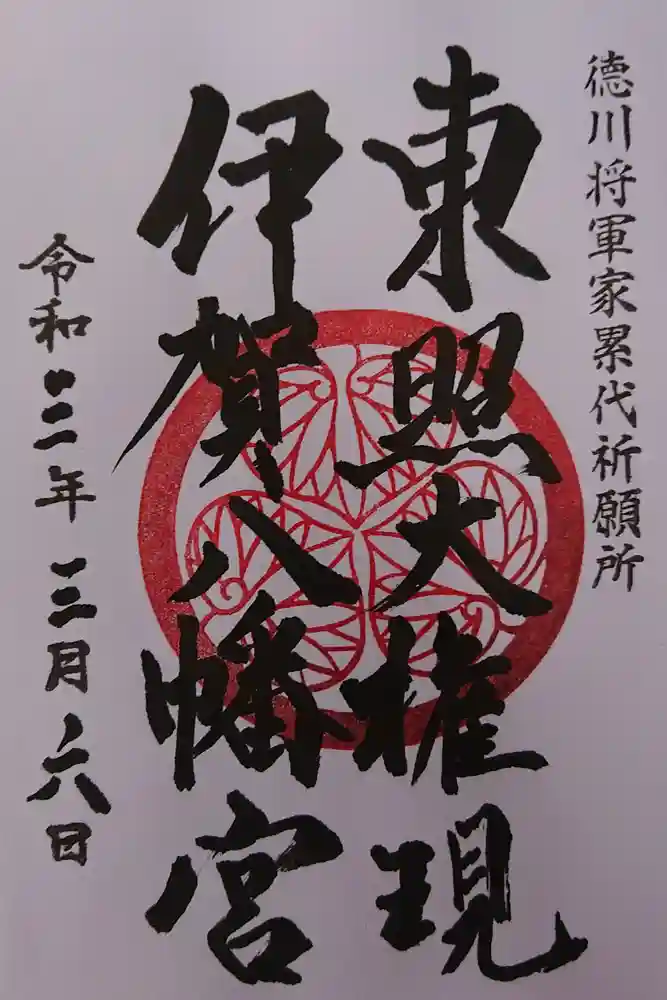 徳川将軍家累代祈願所
東照大権現
伊賀八幡宮
令和二年三月六日